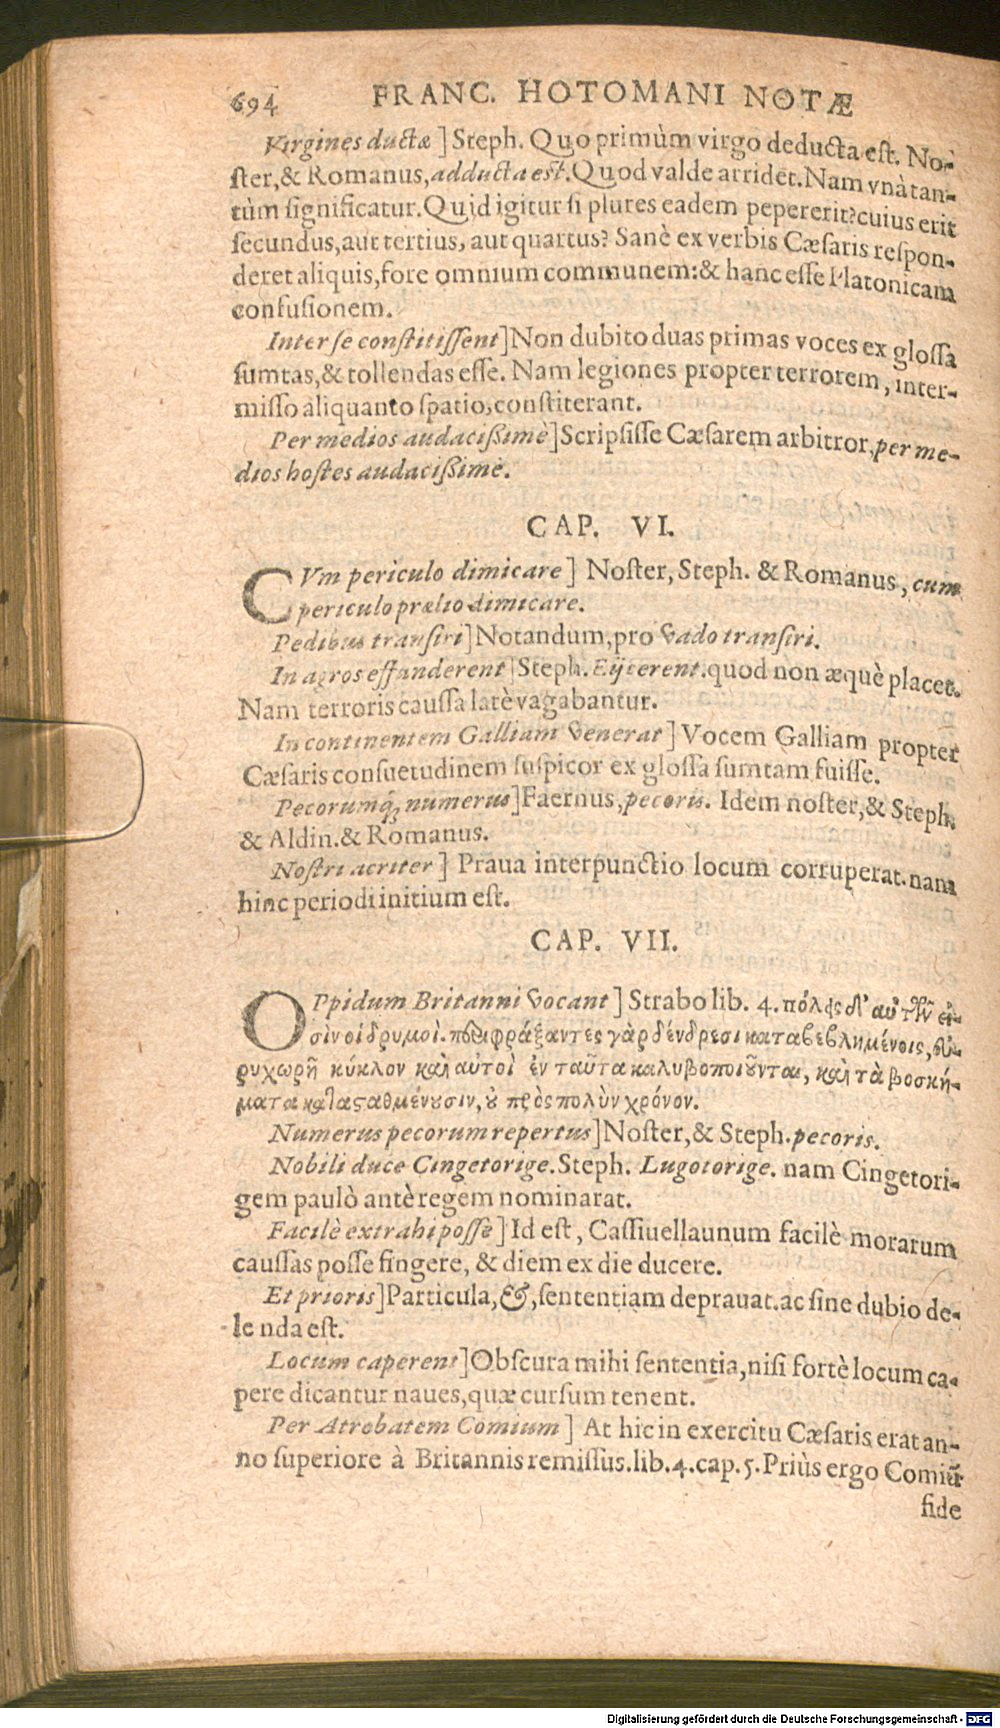 694 FRANC. HOTOMANI NOTÆ
Virgines ductæ ] Steph. Quo primùm virgo deducta est. No-
ster, & Romanus, adducta est. Quod valde arridet. Nam vnà tan-
tùm significatur. Quid igitur si plures eadem pepererit? cuius erit
secundus, aut tertius, aut quartus? Sanè ex verbis Cæsaris respon-
deret aliquis, fore omnium communem: & hanc esse Platonicam
confusionem.
Inter se constitissent] Non dubito duas primas voces ex glossa
sumtas, & tollendas esse. Nam legiones propter terrorem, inter-
misso aliquanto spatio, constiterant.
Per medios audacissimè] Scripsisse Cæsarem arbitror, per me-
dios hostes audacissimè.
CAP. VI.
CVm periculo dimicare ] Noster, Steph. & Romanus, cum
periculo prælio dimicare.
Pedibus transiri] Notandum, pro vado transiri.
In agros effunderent] Steph. Eijcerent. quod non æquè placet.
Nam terroris caussa latè vagabantur.
In continentem Galliam venerat ] Vocem Galliam propter
Cæsaris consuetudinem suspicor ex glossa sumtam fuisse.
Pecorumq́; numerus] Faernus, pecoris. Idem noster, & Steph.
& Aldin. & Romanus.
Nostri acriter ] Praua interpunctio locum corruperat. nam
hinc periodi initium est.
CAP. VII.
OPpidum Britanni vocant ] Strabo lib. 4. πόλεις δ' αὐτῶν εἰ-
σὶν οἱ δρυμοί. περιφράξαντες γὰρ δένδρεσι καταβεβλημένοις, εὐ-
ρυχωρῆ κύκλον καὶ αὐτοὶ ἐν ταῦτα καλυβοποιοῦνται, καὶ τὰ βοσκή-
ματα καταςαθμένουσιν, οὐ πρὸς πολὺν χρόνον.
Numerus pecorum repertus] Noster, & Steph. pecoris.
Nobili duce Cingetorige. Steph. Lugotorige. nam Cingetori-
gem paulò antè regem nominarat.
Facilè extrahi posse ] Id est, Cassiuellaunum facilè morarum
caussas posse fingere, & diem ex die ducere.
Et prioris] Particula, &, sententiam deprauat. ac sine dubio de-
lenda est.
Locum caperent] Obscura mihi sententia, nisi fortè locum ca-
pere dicantur naues, quæ cursum tenent.
Per Atrebatem Comium ] At hic in exercitu Cæsaris erat an-
no superiore à Britannis remissus. lib. 4. cap. 5. Priùs ergo Comiũ
fide
Digitalisierung gefördert durch die Deutsche Forschungsgemeinschaft - DFG